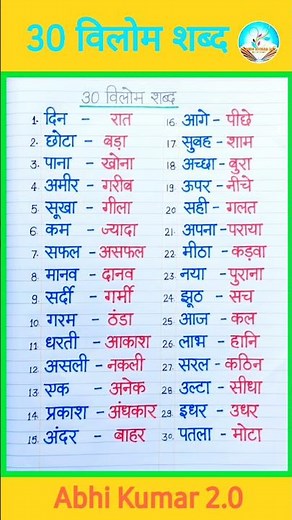 30 विलोम शब्द
30 विलोम शब्द
1. दिन - रात
2. छोटा - बड़ा
3. पाना - खोना
4. अमीर - गरीब
5. सूखा - गीला
6. कम - ज्यादा
7. सफल - असफल
8. मानव - दानव
9. सर्दी - गर्मी
10. गरम - ठंडा
11. धरती - आकाश
12. असली - नकली
13. एक - अनेक
14. प्रकाश - अंधकार
15. अंदर - बाहर
16. आगे - पीछे
17. सुबह - शाम
18. अच्छा - बुरा
19. ऊपर - नीचे
20. सही - गलत
21. अपना - पराया
22. मीठा - कड़वा
23. नया - पुराना
24. झूठ - सच
25. आज - कल
26. लाभ - हानि
27. सरल - कठिन
28. उल्टा - सीधा
29. इधर - उधर
30. पतला - मोटा
Abhi Kumar 2.0